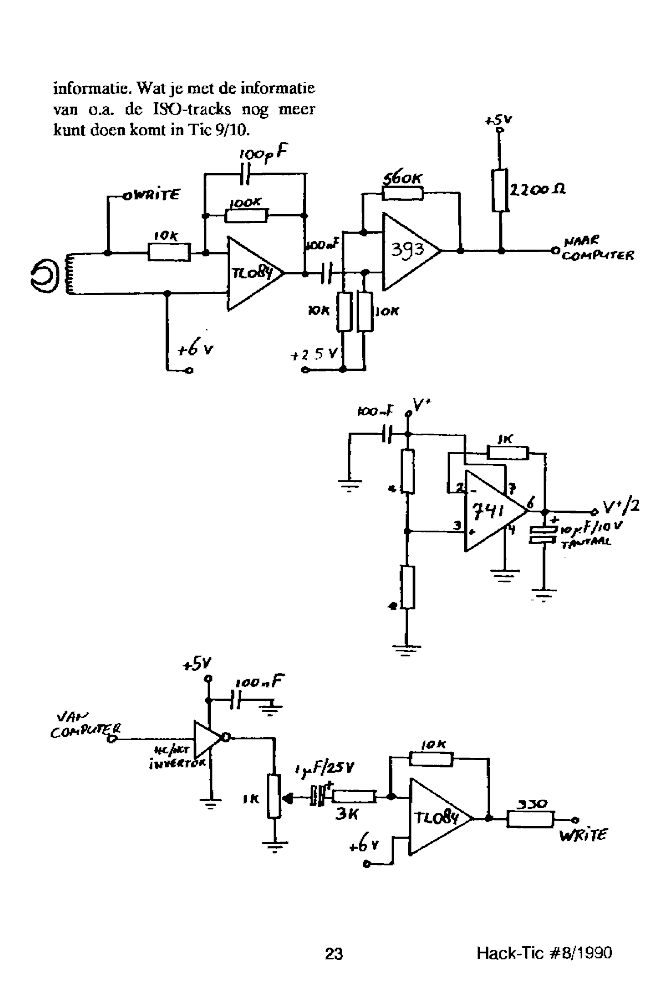 informatie. Wat je met de informatie
van o.a. de ISO-tracks nog meer
kunt doen komt in Tic 9/10.
+5V
100pF
560K
WRITE
100K
2200Ω
10K
100nF
393
TL084
NAAR
COMPUTER
10K
10K
+6V
+2 5 V
100nF
V+
1K
2
-
7
741
6
V+/2
3
+
4
+
10µF/10V
TANTAAL
*
*
+5V
100nF
VAN
COMPUTER
HC/HCT
INVERTOR
1µF/25V
+
10K
1K
3K
TL084
330
+6V
WRITE
23
Hack-Tic #8/1990